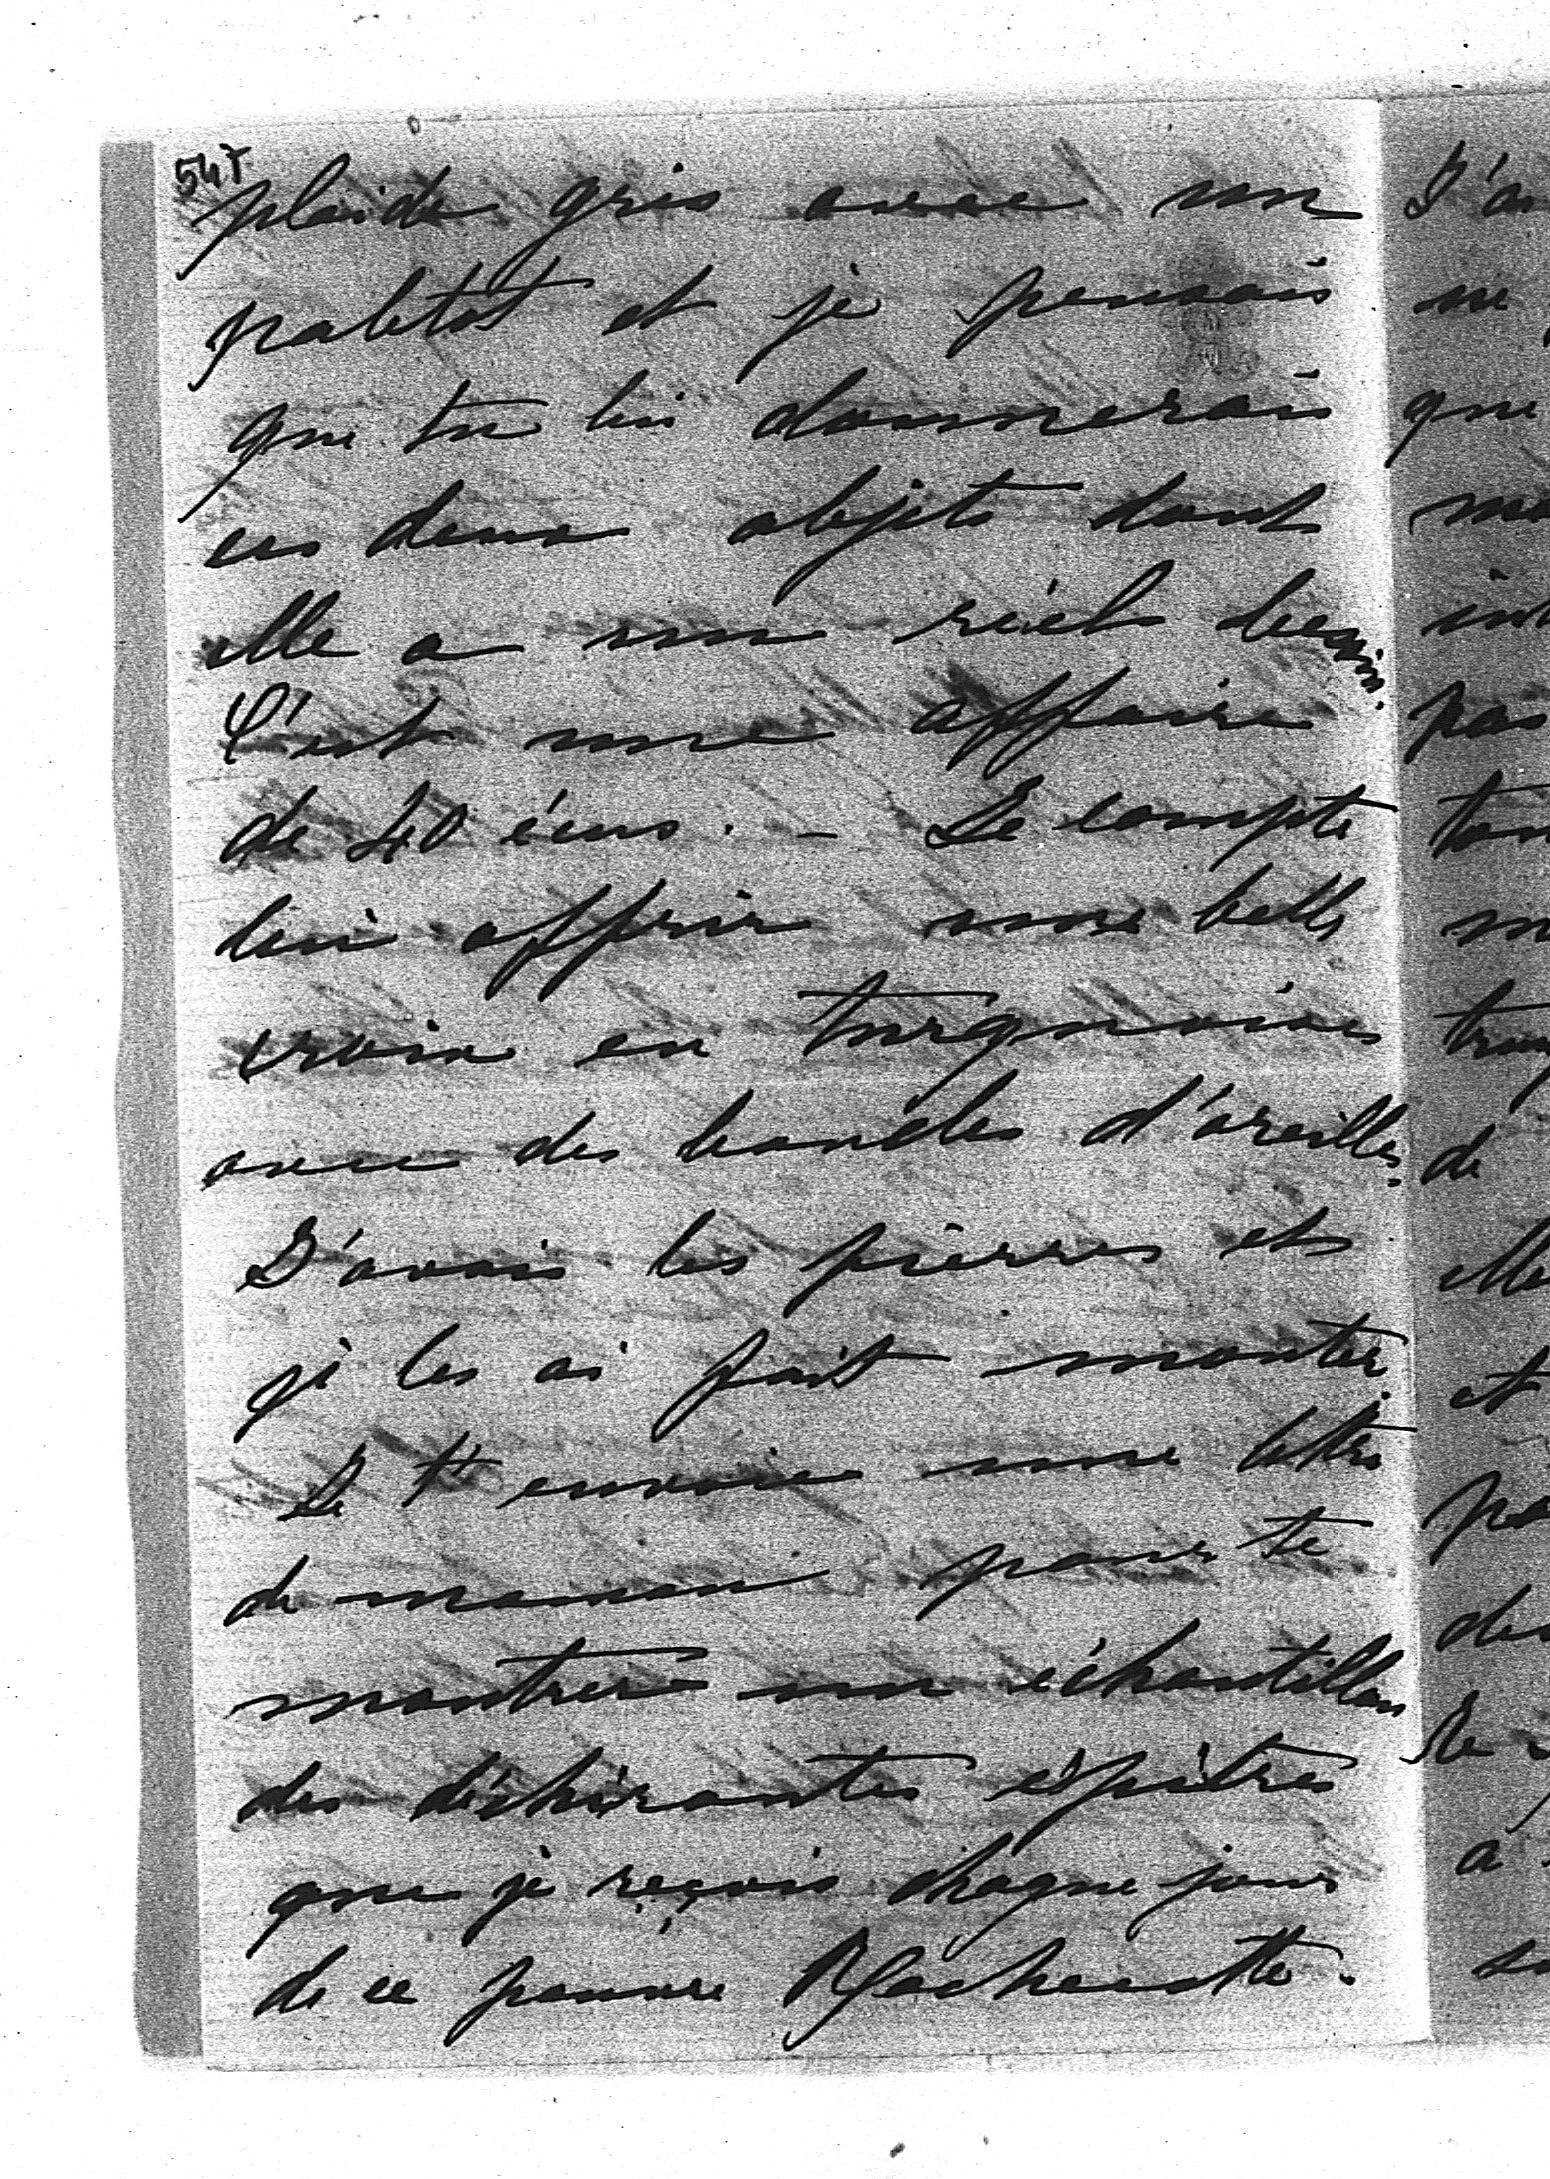 547
plaide gris avec un
paletot et je pensais
que tu lui donnerais
ces deux objets dont
elle a un réel besoin.
C'est une affaire
de 40 écus. - Je compte
lui offrir une belle
croix en turquoises
avec des boucles d'oreilles.
J'avais les pierres et
je les ai fait monter.
Je t'envoie une lettre
de maman pour te
montrer un échantillon
des déchirantes épîtres
que je reçois chaque jour
de ce pauvre